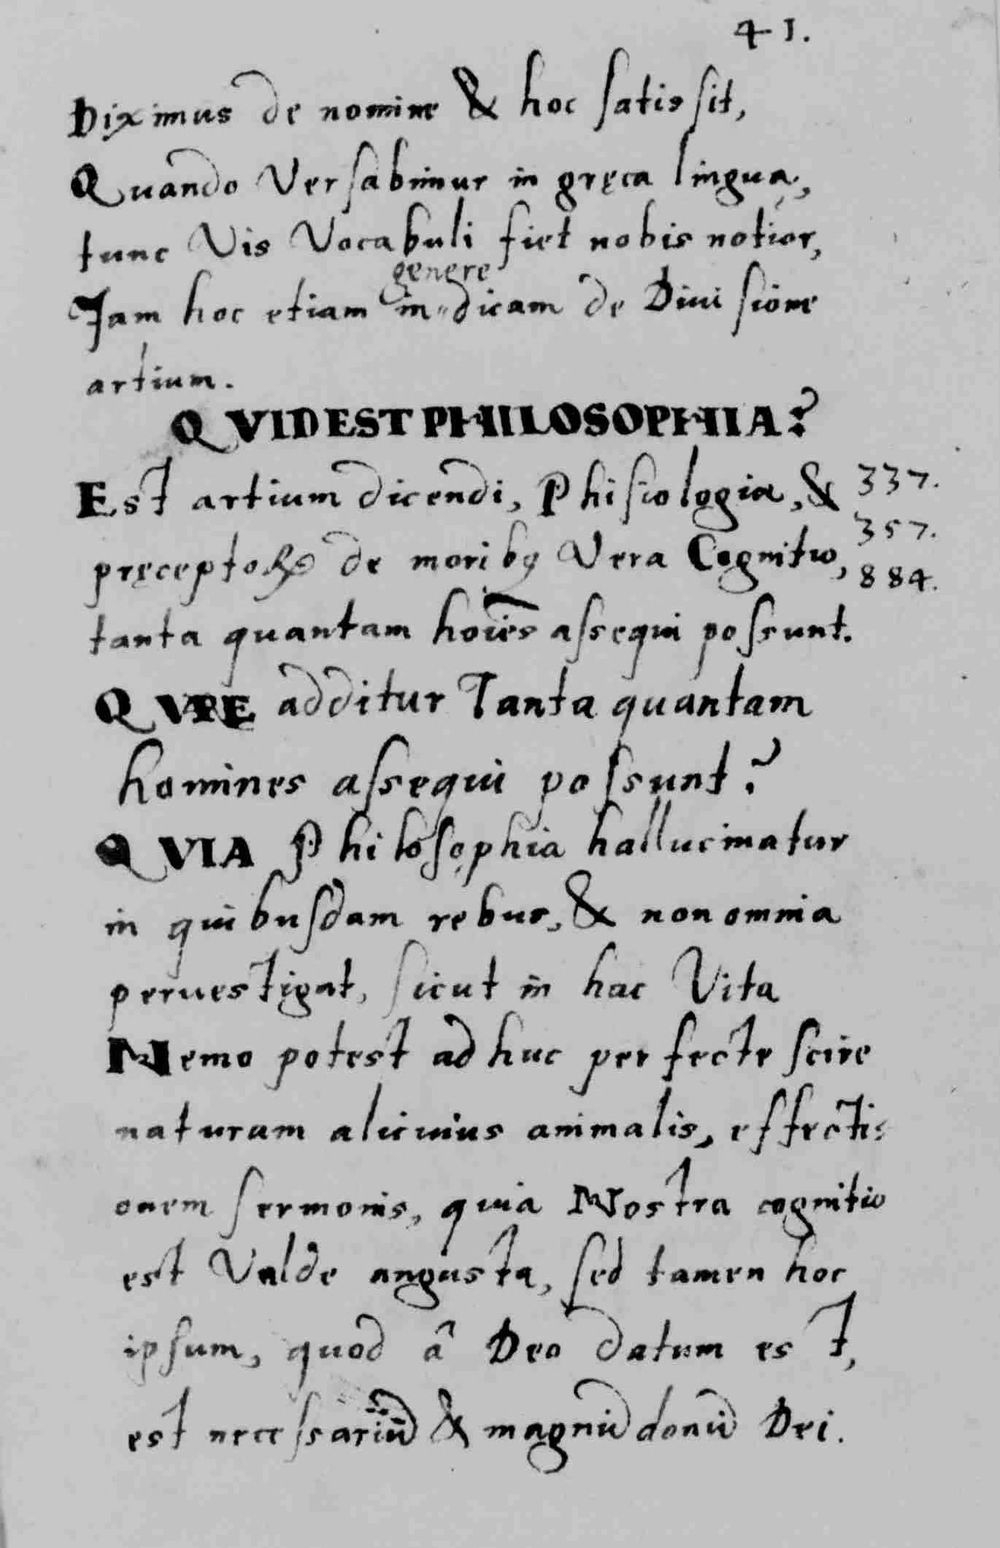 41.
Diximus de nomine & hoc satis sit,
Quando Versabimur in gręca lingua,
tunc Vis Vocabuli fiet nobis notior,
genere
Jam hoc etiam in dicam de Diuisione
artium.
QVID EST PHILOSOPHIA?
Est artium dicendi, Phisiologia, & 337.
357.
pręceptoꝝ de moribꝰ Vera Cognitio, 884.
tanta quantam hoı̄es assequi possunt.
QVARE additur Tanta quantam
homines assequi possunt?
QVIA Philosophia hallucinatur
in quibusdam rebus, & non omnia
peruestigat, sicut in hac Vita
Nemo potest adhuc perfecte scire
naturam alicuius animalis, effecti
onem sermonis, quia Nostra cognitio
est Valde angusta, sed tamen hoc
ipsum, quod â Deo datum est,
est necessariū & magnū donū Dei.